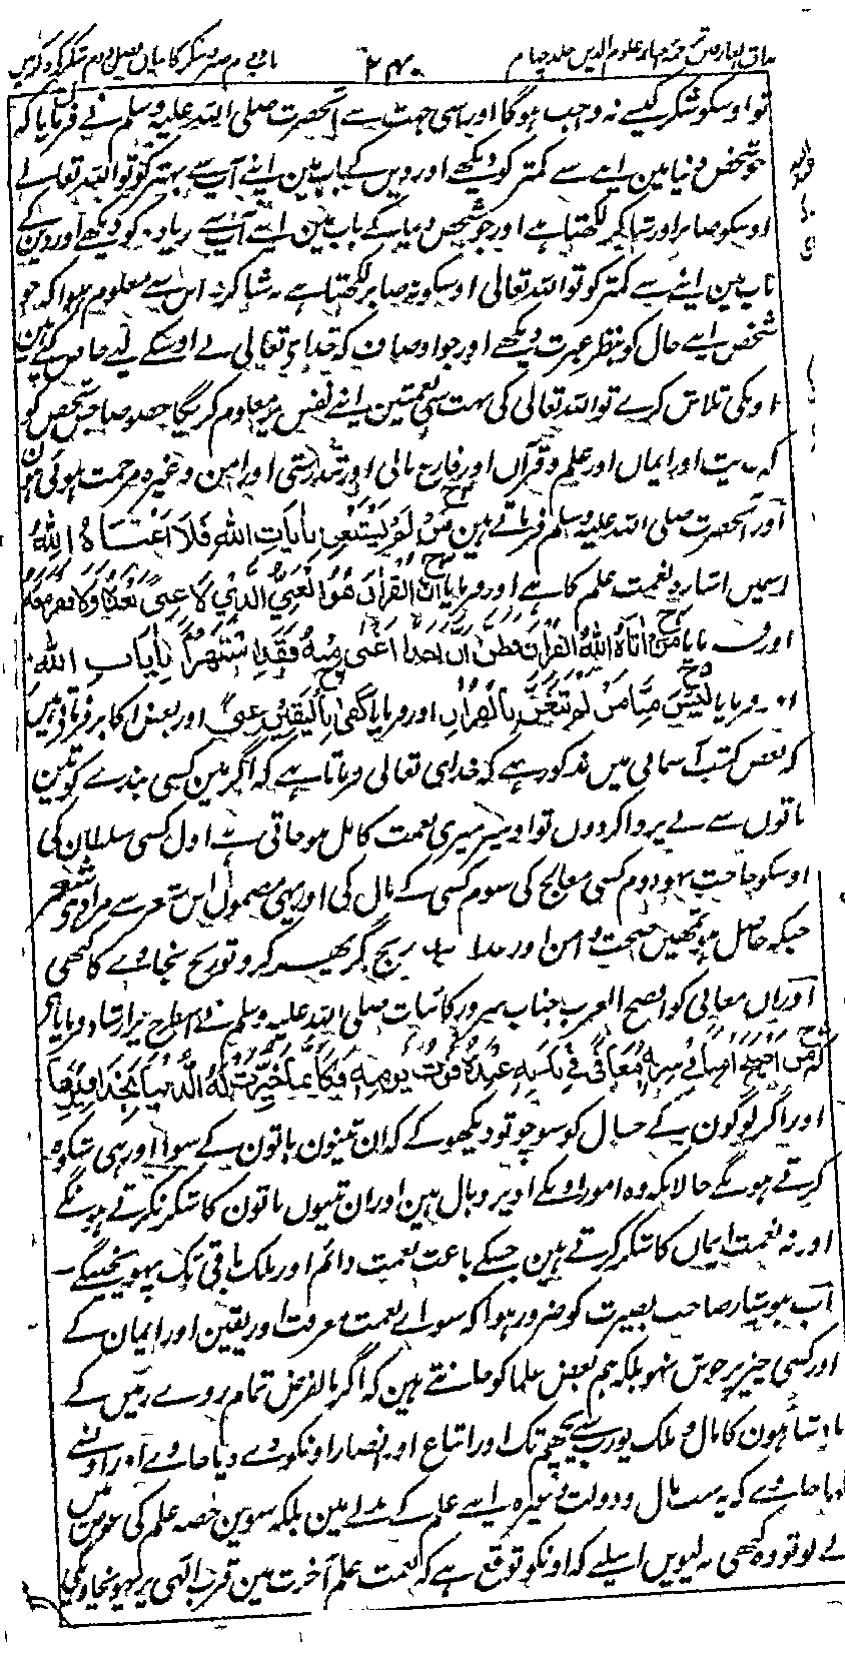 مذاق العارفین ترجمہ احیاء علوم الدین جلد چہارم ۲۴۰ باب دوم صبر و شکر کا بیان فصل دوم شکر کے ذکر میں
تو اوسکو شکر کیسے نہ واجب ہوگا اور اسی جہت سے آنحضرت صلی اللہ علیہ وسلم نے فرمایا کہ
جو شخص دنیا مین اپنے سے کمتر کو دیکھے اور دین کے باب مین اپنے آپ سے بہتر کو تو اللہ تعالے
اوسکو صابر اور شاکر لکھتا ہے اور جو شخص دنیا کے باب مین اپنے آپ سے زیادہ کو دیکھے اور دین کے
باب مین اپنے سے کمتر کو تو اللہ تعالی اوسکو نہ صابر لکھتا ہے نہ شاکر اس سے معلوم ہوا کہ جو
شخص اپنے حال کو بنظر عبرت دیکھے اور جو اوصاف کہ خدای تعالی نے اوسکے لیے خاص کیے ہین
اونکی تلاش کرے تو اللہ تعالی کی بہت سی نعمتین اپنے نفس پر معلوم کریگا خصوصاً جس شخص کو
کہ سنت اور ایمان اور علم و قرآن اور فارغ بالی اور تندرستی اور امن وغیرہ مرحمت ہوئی ہون
اور آنحضرت صلی اللہ علیہ وسلم فرماتے ہین مَنْ لَمْ يَسْتَغْنِ بِاٰيَاتِ اللهِ فَلَا اَغْنَاهُ اللهُ
اسمیں اشارہ نعمت علم کا ہے اور فرمایا اِنَّ الْقُرْاٰنَ هُوَ الْغِنَى الَّذِيْ لَا غِنًى بَعْدَهُ وَلَا فَقْرَ مَعَهُ
اور فرمایا مَنْ اٰتَاهُ اللهُ الْقُرْاٰنَ فَظَنَّ اَنَّ اَحَدًا اَغْنٰى مِنْهُ فَقَدِ اسْتَهْزَأَ بِاٰيَاتِ اللهِ
اور فرمایا لَيْسَ مِنَّا مَنْ لَمْ يَتَغَنَّ بِالْقُرْاٰنِ اور فرمایا كَفٰى بِالْيَقِيْنِ غِنًى اور بعض اکابر فرماتے ہیں
کہ بعض کتب آسمانی میں مذکور ہے کہ خدای تعالی فرماتا ہے کہ اگر مین کسی بندے کو تین
باتوں سے بے پروا کردوں تو اوسپر میری نعمت کامل ہو جاتی ہے اول کسی سلطان کی
اوسکو حاجت نہو دوم کسی معالج کی سوم کسی کے مال کی اور یہی مضمون اس شعر سے مراد ہے شعر
جبکہ حاصل ہو تمھیں صحت و امن اور غذا رنج گر پھر کرو تو رنج نجاوے گا کبھی
اور ان معانی کو افصح العرب جناب سرور کائنات صلی اللہ علیہ وسلم نے اسطرح پر ارشاد فرمایا ہے
کہ مَنْ اَصْبَحَ اٰمِنًا فِيْ سِرْبِهٖ مُعَافًى فِيْ بَدَنِهٖ عِنْدَهٗ قُوْتُ يَوْمِهٖ فَكَاَنَّمَا حِيْزَتْ لَهُ الدُّنْيَا بِحَذَافِيْرِهَا
اور اگر لوگون کے حال کو سوچو تو دیکھو کے کہ ان تینون باتون کے سوا اور ہی شکوہ
کرتے ہونگے حالانکہ وہ امور اونکے اوپر وبال ہین اور ان تینوں باتون کا شکر نکرتے ہونگے
اور نہ نعمت ایمان کا شکر کرتے ہین جسکے باعث نعمت دائم اور ملک باقی تک پہونچینگے
اب ہوشیار صاحب بصیرت کو ضرور ہوا کہ سواے نعمت معرفت اور یقین اور ایمان کے
اور کسی چیز پر خوش نہو بلکہ ہم بعض علما کو جانتے ہین کہ اگر بالفرض تمام روے زمین کے
بادشاہون کا مال و ملک پورب سے پچھم تک اور اتباع اور انصار اونکو دے دیا جاوے اور اونسے
کہا جاوے کہ یہ سب مال و دولت وغیرہ اپنے علم کے بدلے مین بلکہ سوین حصہ علم کی عوض میں
لے لو تو وہ کبھی نہ لیویں اسلیے کہ اونکو توقع ہے کہ نعمت علم آخرت مین قرب الٰہی پر پہونچاویگی